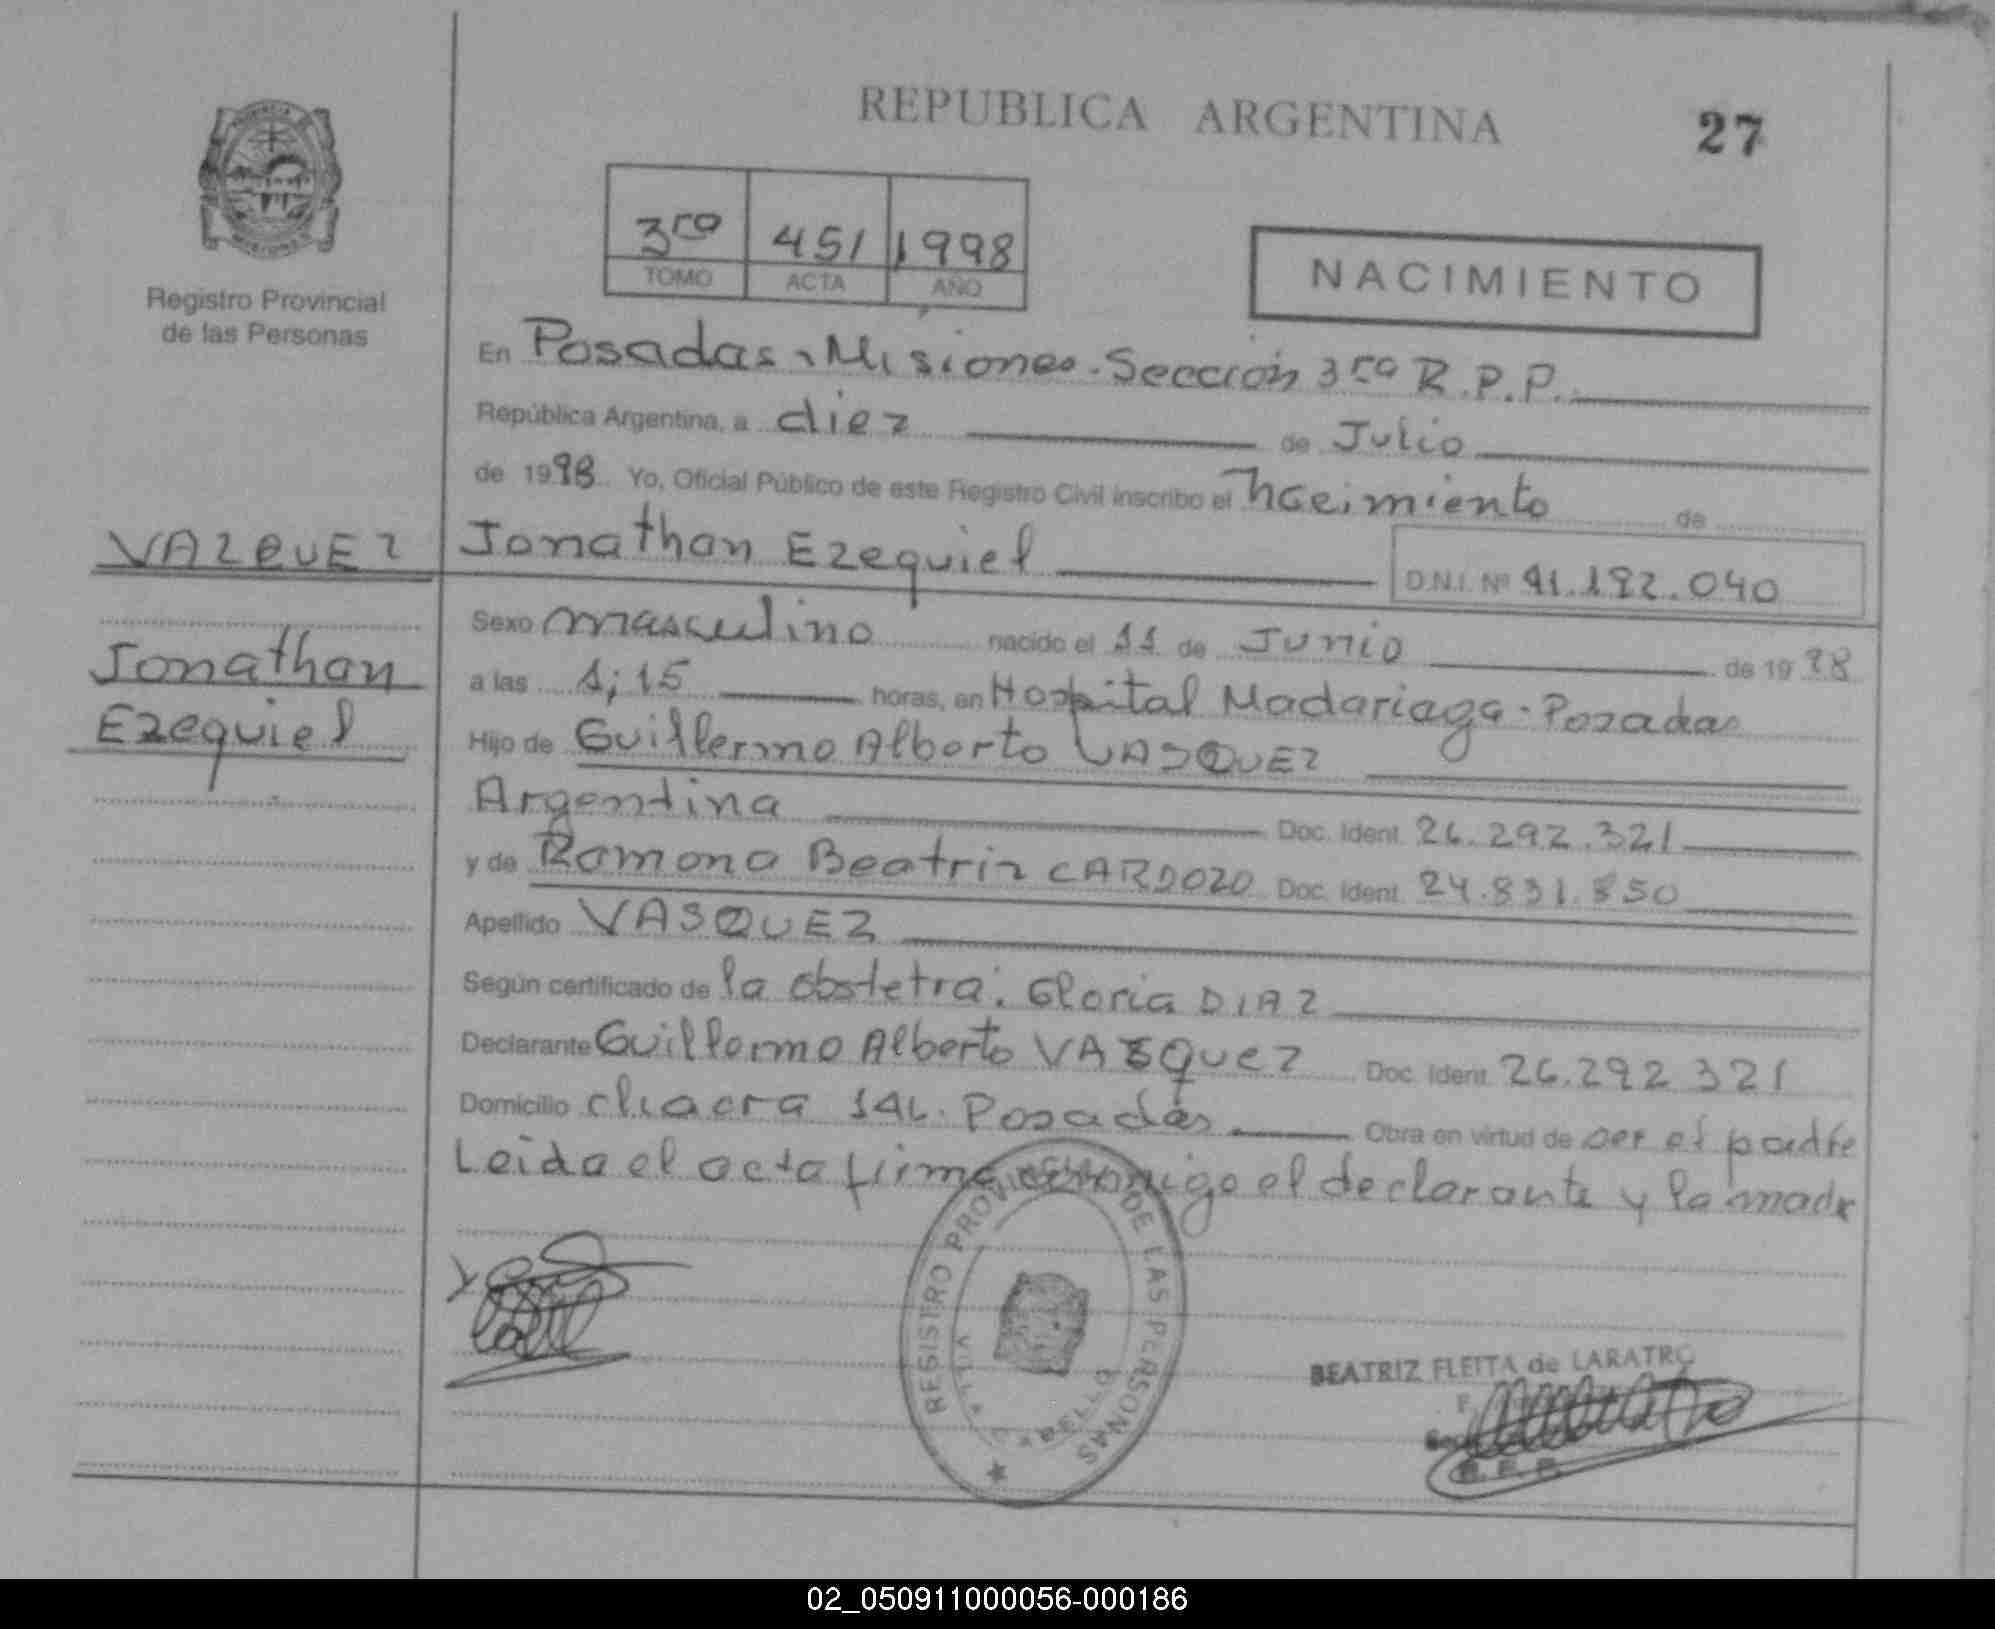 REPUBLICA ARGENTINA
27
3ra 451 1998
TOMO ACTA AÑO
NACIMIENTO
Registro Provincial
de las Personas
En Posadas, Misiones. Sección 3ra R.P.P.
República Argentina, a diez de Julio
de 1998 Yo, Oficial Público de este Registro Civil inscribo el Nacimiento de
VAZQUEZ Jonathan Ezequiel D.N.I. Nº 41.192.040
Jonathan
Ezequiel
Sexo masculino nacido el 11 de Junio de 1998
a las 1;15 horas, en Hospital Madariaga - Posadas
Hijo de Guillermo Alberto VASQUEZ
Argentina Doc. Ident. 26.292.321
y de Ramona Beatriz CARDOZO Doc. Ident. 24.831.850
Apellido VASQUEZ
Según certificado de la obstetra: Gloria DIAZ
Declarante Guillermo Alberto VASQUEZ Doc. Ident. 26.292 321
Domicilio chacra 146. Posadas Obra en virtud de ser el padre
Leida el acta firma conmigo el declarante y la madre
REGISTRO PROVINCIAL DE LAS PERSONAS
VILLA CABELLO
BEATRIZ FLEITA de LARATRO
02_050911000056-000186